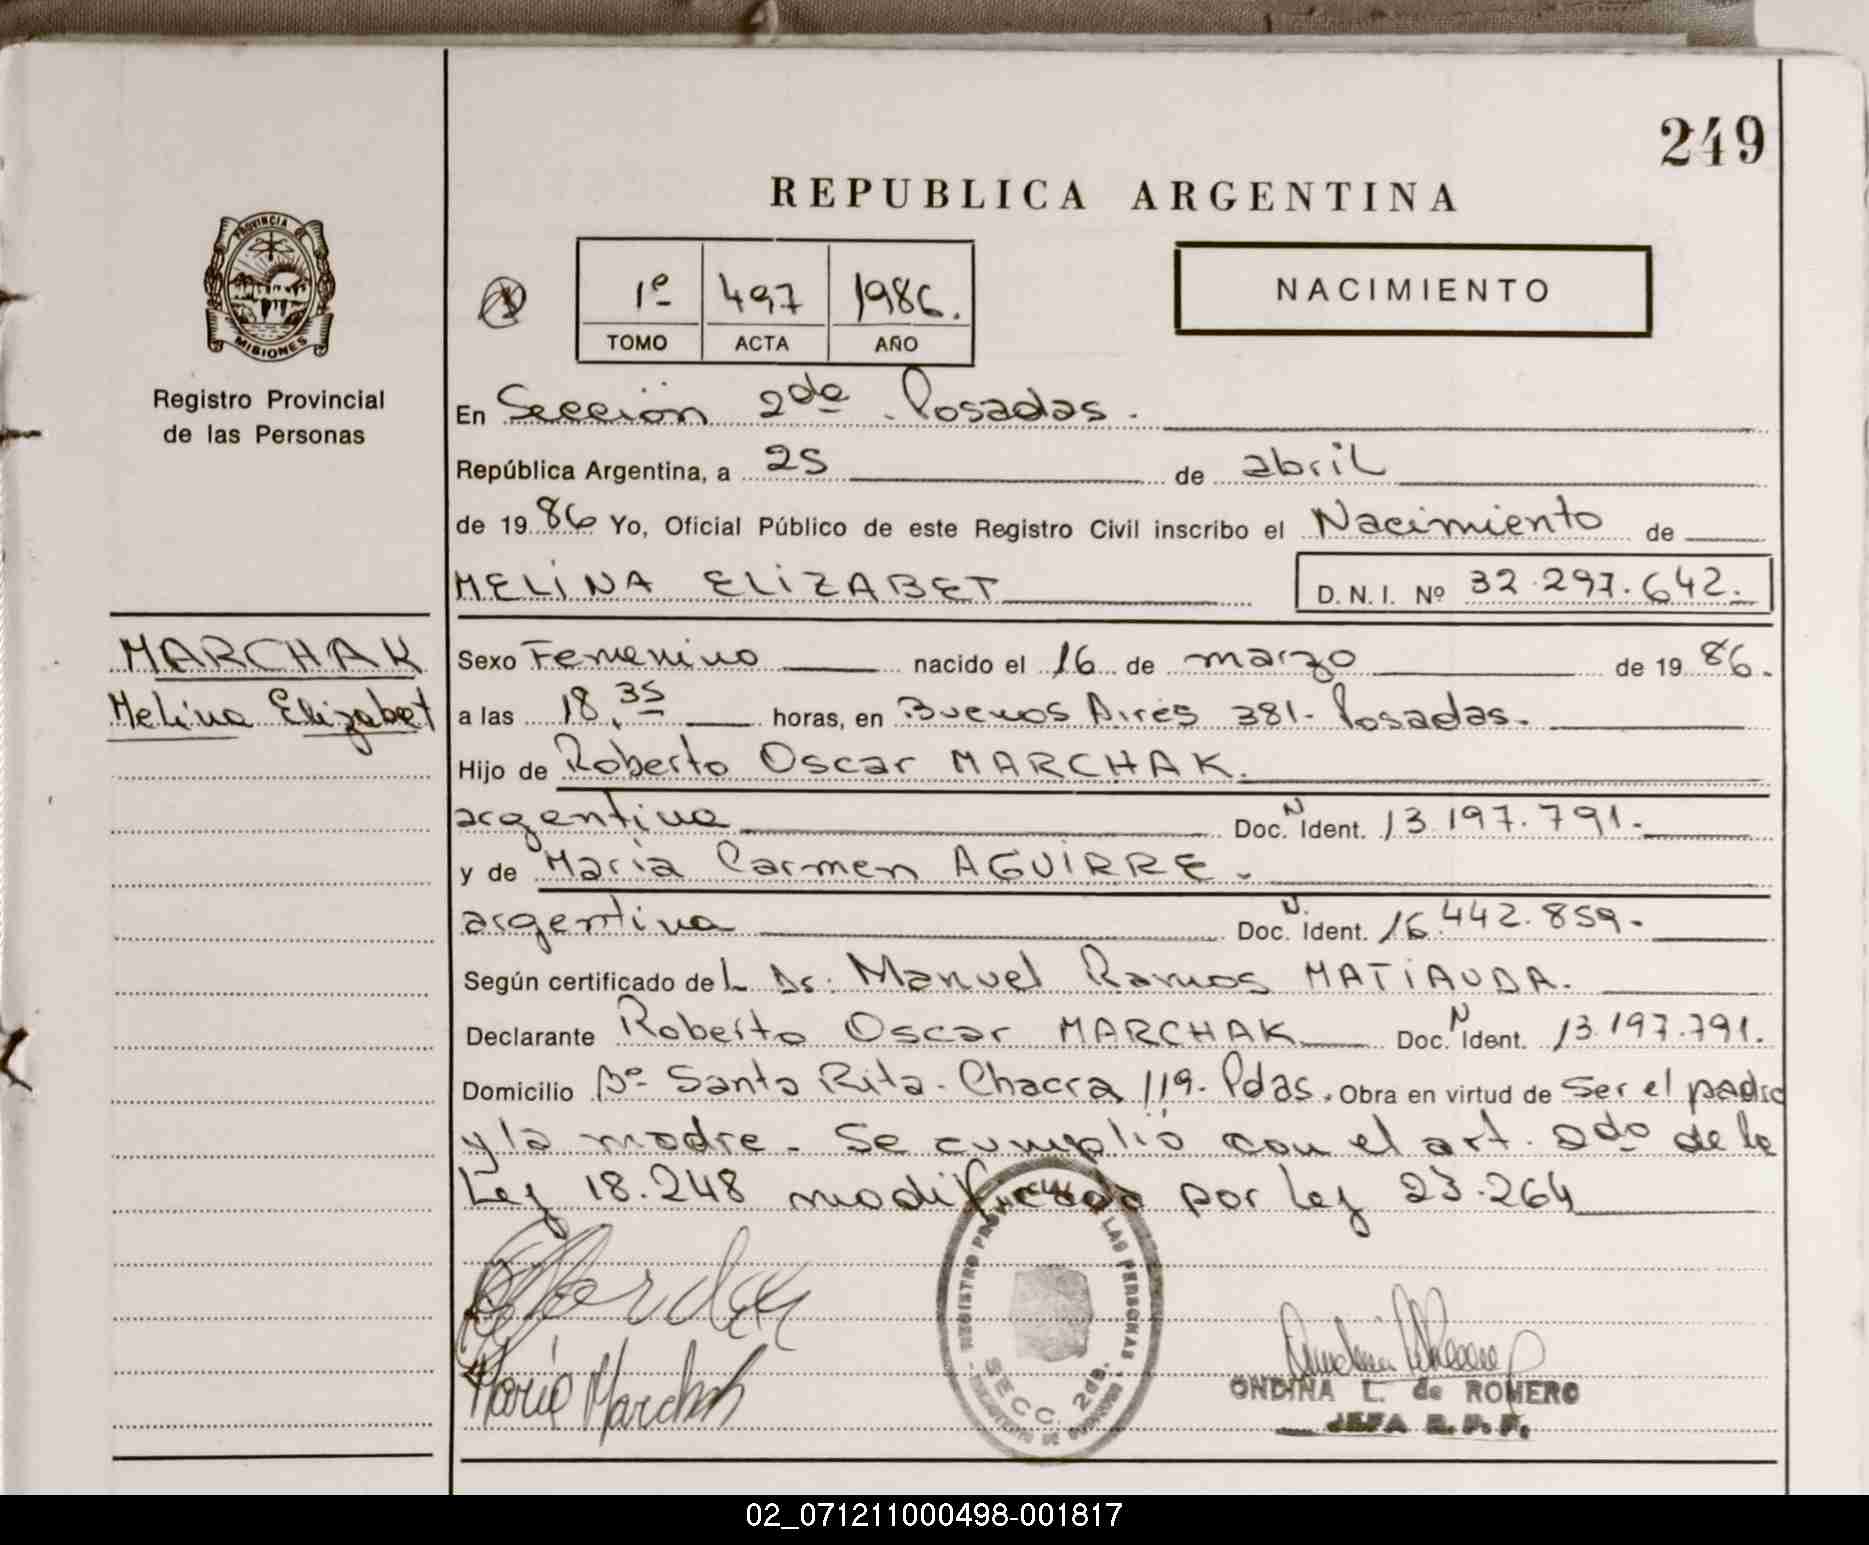 249
REPUBLICA ARGENTINA
PROVINCIA DE
MISIONES
Registro Provincial
de las Personas
1º 497 1986.
TOMO ACTA AÑO
NACIMIENTO
En Sección 2da. Posadas.
República Argentina, a 25 de abril
de 1986 Yo, Oficial Público de este Registro Civil inscribo el Nacimiento de
MELINA ELIZABET D. N. I. Nº 32.297.642.
MARCHAK
Melina Elizabet
Sexo Femenino nacido el 16 de marzo de 1986.
a las 18,35 horas, en Buenos Aires 381. Posadas.
Hijo de Roberto Oscar MARCHAK.
argentina Doc. N Ident. 13.197.791.
y de María Carmen AGUIRRE.
argentina Doc. N. Ident. 16.442.859.
Según certificado del Dr. Manuel Ramos MATIAUDA.
Declarante Roberto Oscar MARCHAK Doc. N Ident. 13.197.791.
Domicilio Bº Santa Rita. Chacra 119. Pdas. Obra en virtud de ser el padre
y la madre. Se cumplió con el art. 2do de la
Ley 18.248 modificada por Ley 23.264
REGISTRO PROVINCIAL DE LAS PERSONAS
SECC. 2da.
María Marchak
ONDINA L. de ROMERO
JEFA R. P. P.
02_071211000498-001817